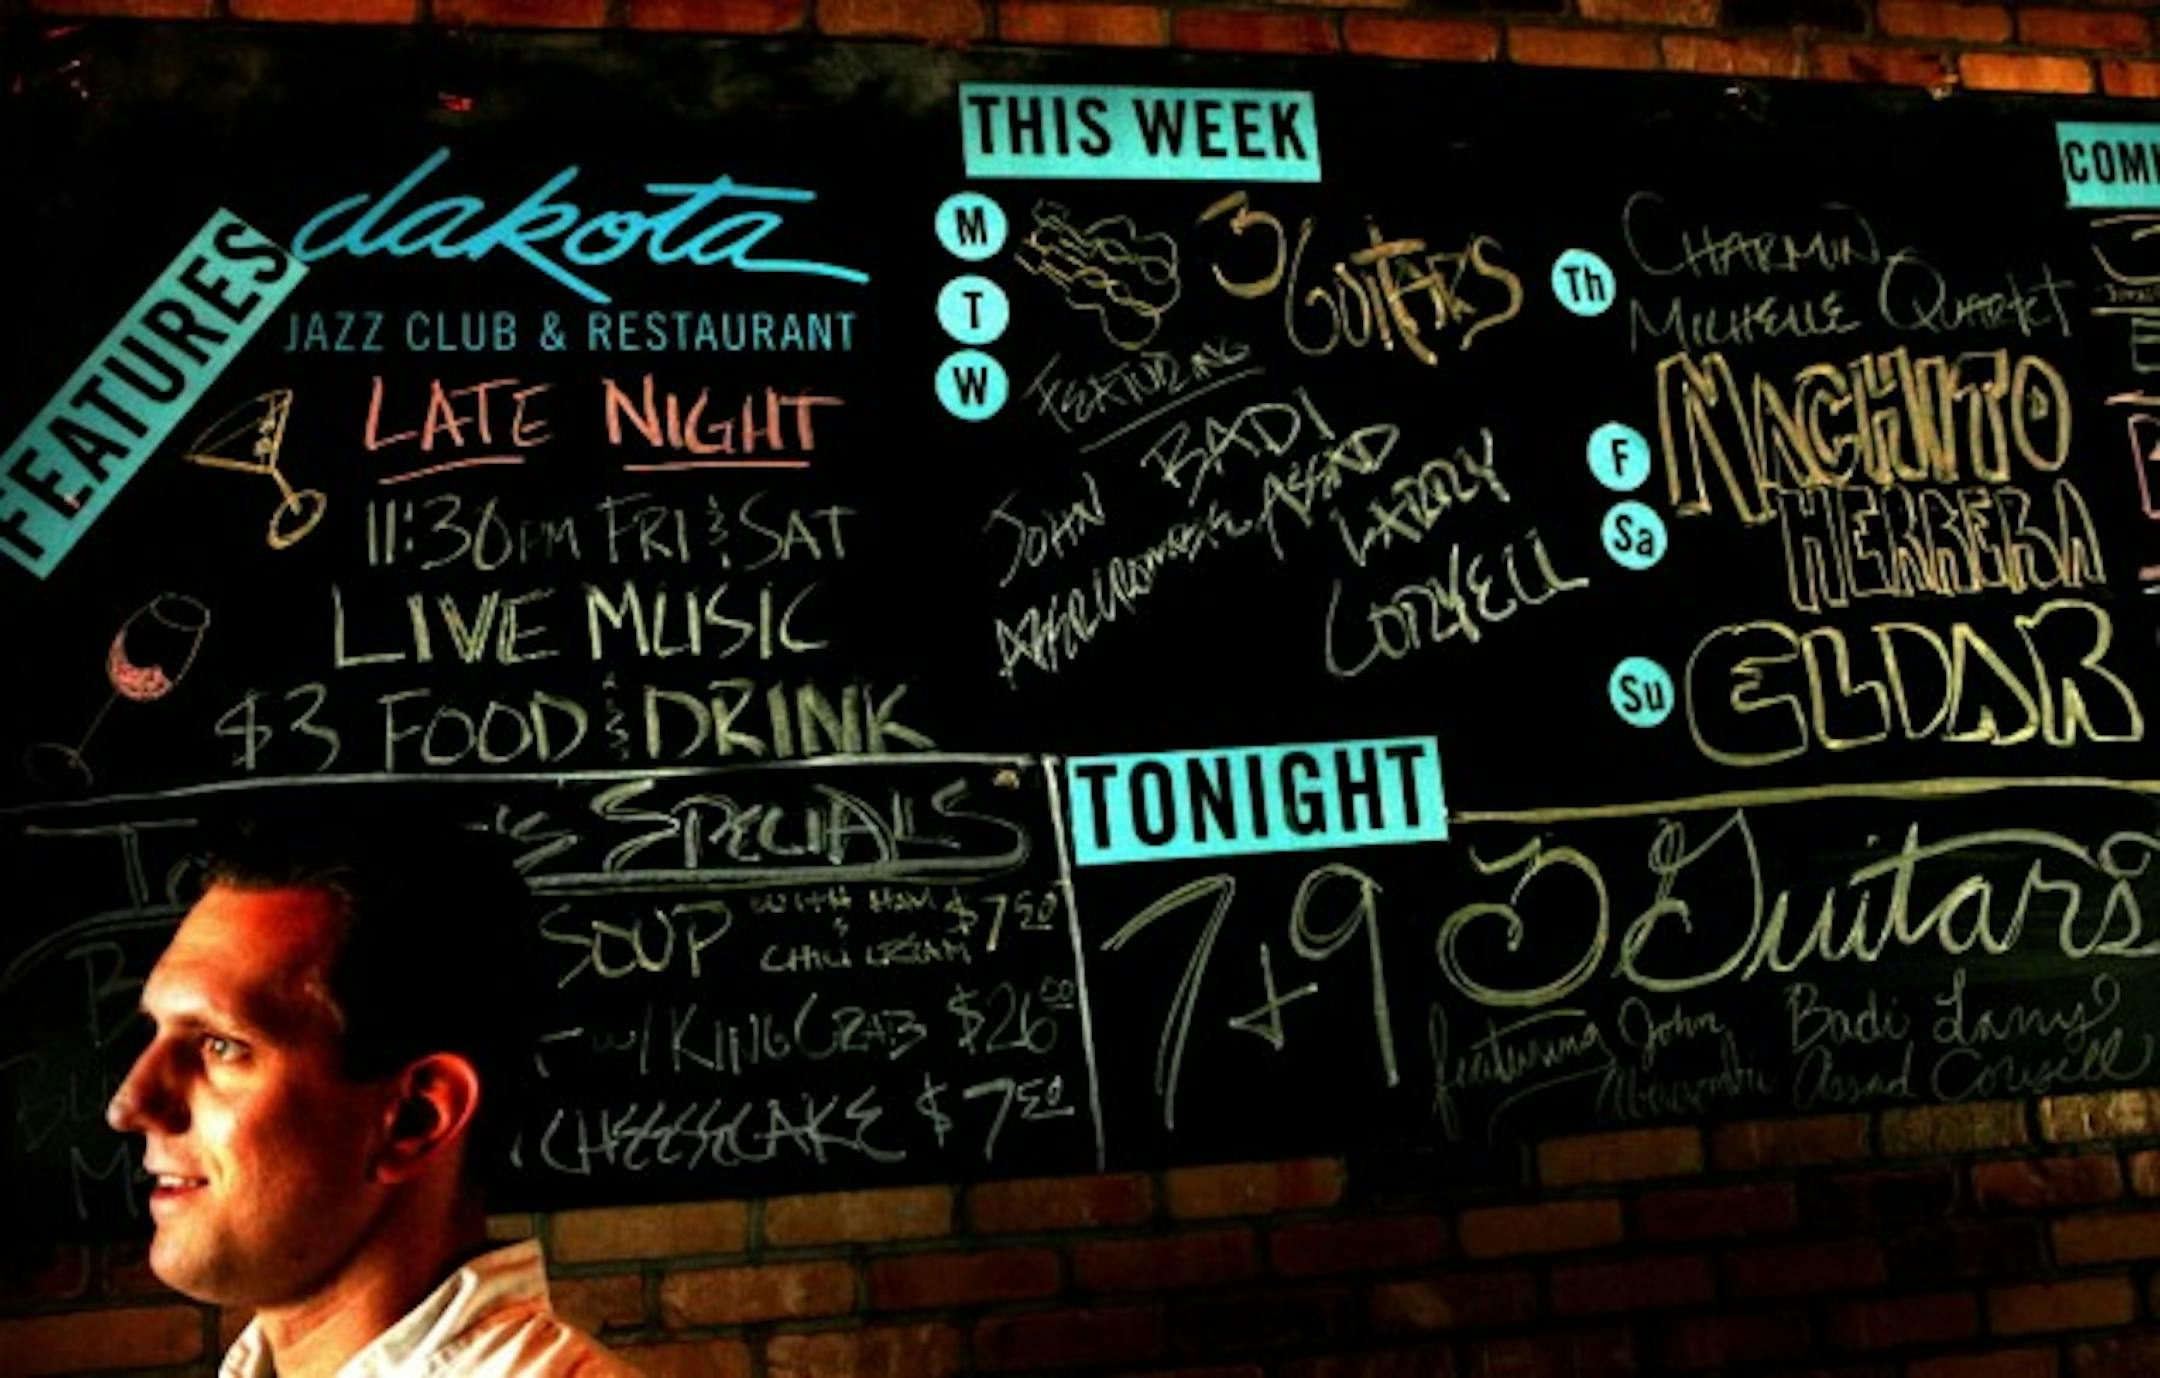 FEATURES
dakota
JAZZ CLUB & RESTAURANT
LATE NIGHT
11:30PM FRI & SAT
LIVE MUSIC
$3 FOOD & DRINK
'S SPECIALS
SOUP WITH HAM & CHILI CREAM $7.50
W/ KING CRAB $26.00
CHEESECAKE $7.50
THIS WEEK
M
T
W
3 GUITARS
FEATURING
JOHN ABERCROMBIE
BADI ASSAD
LARRY CORYELL
Th
CHARMIN
MICHELLE QUARTET
F
Sa
MACHITO
HERRERA
Su
ELDAR
TONIGHT
7+9
3 Guitars
featuring John Badi Larry
Assad Coryell
COM